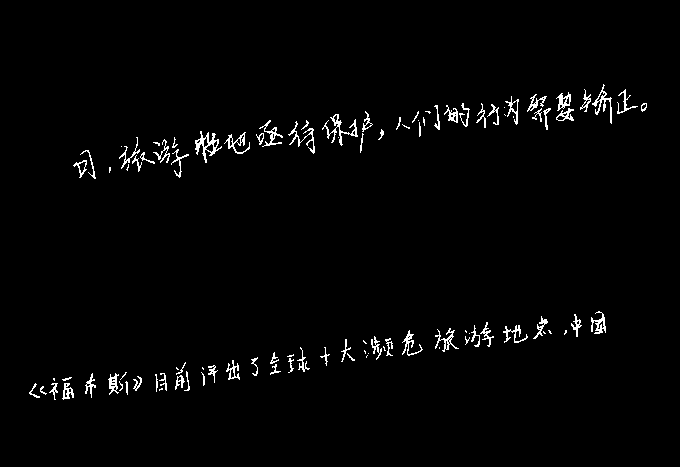 日，旅游胜地亟待保护，人们的行为需要矫正。
《福布斯》目前评出了全球十大濒危旅游地点，中国